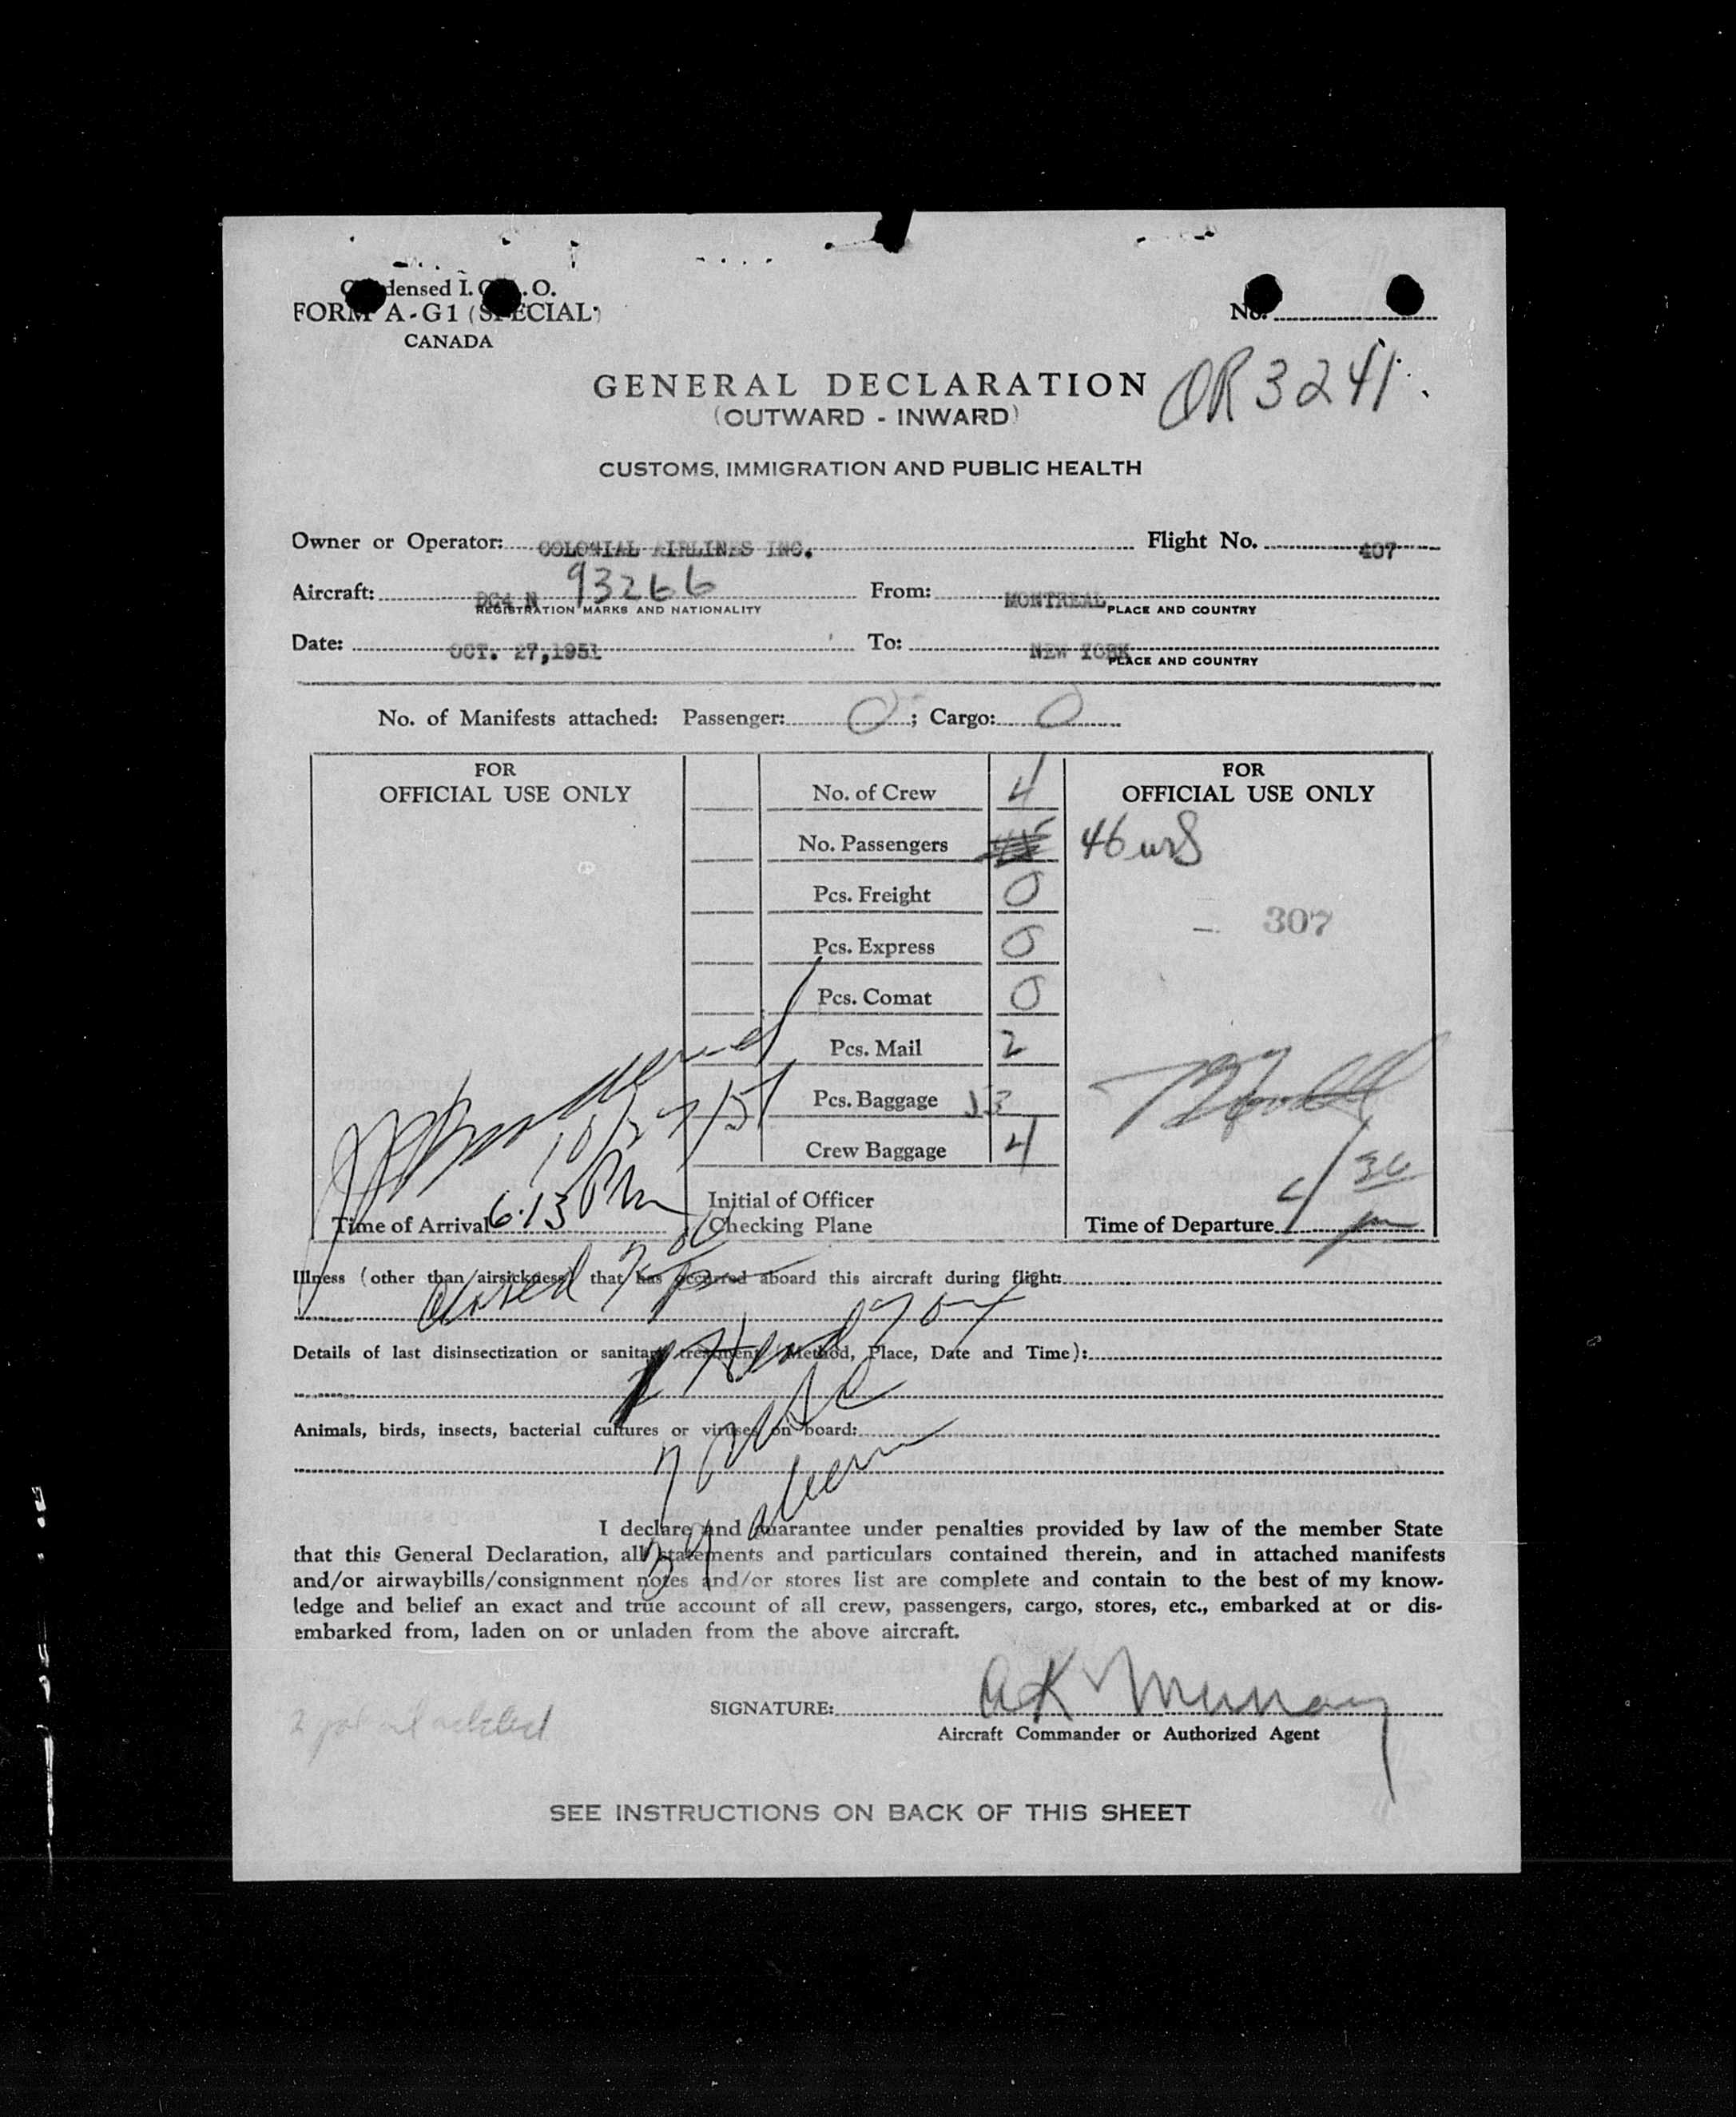 Condensed I.C.A.O.
FORM A-G1 (SPECIAL)
CANADA
No.
OR 3241
GENERAL DECLARATION
(OUTWARD - INWARD)
CUSTOMS, IMMIGRATION AND PUBLIC HEALTH
Owner or Operator: COLONIAL AIRLINES INC. Flight No. 407
Aircraft: DC4 N 93266 From: MONTREAL
REGISTRATION MARKS AND NATIONALITY PLACE AND COUNTRY
Date: OCT. 27,1951 To: NEW YORK
PLACE AND COUNTRY
No. of Manifests attached: Passenger: 0 ; Cargo: 0
FOR
OFFICIAL USE ONLY
No. of Crew 4
No. Passengers
Pcs. Freight 0
Pcs. Express 0
Pcs. Comat 0
Pcs. Mail 2
Pcs. Baggage 53
Crew Baggage 4
Initial of Officer
Checking Plane
FOR
OFFICIAL USE ONLY
46
307
10/27/51
Time of Arrival 6.13 PM
Time of Departure 4/30 pm
Illness (other than airsickness) that has occurred aboard this aircraft during flight:
closed
Details of last disinsectization or sanitary treatment (Method, Place, Date and Time):
Animals, birds, insects, bacterial cultures or viruses on board:
39 alien
I declare and guarantee under penalties provided by law of the member State
that this General Declaration, all statements and particulars contained therein, and in attached manifests
and/or airwaybills/consignment notes and/or stores list are complete and contain to the best of my know-
ledge and belief an exact and true account of all crew, passengers, cargo, stores, etc., embarked at or dis-
embarked from, laden on or unladen from the above aircraft.
SIGNATURE: A K Murray
Aircraft Commander or Authorized Agent
SEE INSTRUCTIONS ON BACK OF THIS SHEET